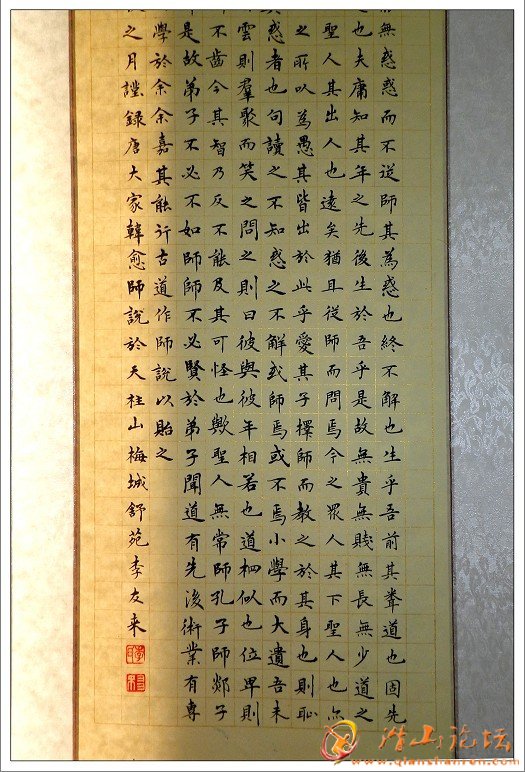 無惑惑而不從師其為惑也終不解也生乎吾前其聞道也固先
也夫庸知其年之先後生於吾乎是故無貴無賤無長無少道之
聖人其出人也遠矣猶且從師而問焉今之眾人其下聖人也亦
之所以為愚其皆出於此乎愛其子擇師而教之於其身也則恥
惑者也句讀之不知惑之不解或師焉或不焉小學而大遺吾未
雲則羣聚而笑之問之則曰彼與彼年相若也道相似也位卑則
不齒今其智乃反不能及其可怪也歟聖人無常師孔子師郯子
是故弟子不必不如師師不必賢於弟子聞道有先後術業有專
學於余余嘉其能行古道作師說以貽之
之月謹錄唐大家韓愈師說於天柱山梅城舒苑李友来
潜山论坛
www.qianshanren.com